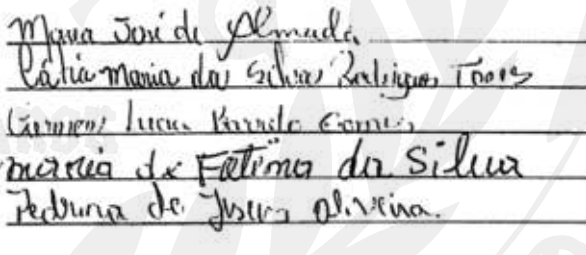 Maria José de Almada
Cátia Maria da Silva Rodrigues Torres
Carmem Lucia Gomes
maria de Fatima da Silva
de Jesus Oliveira.